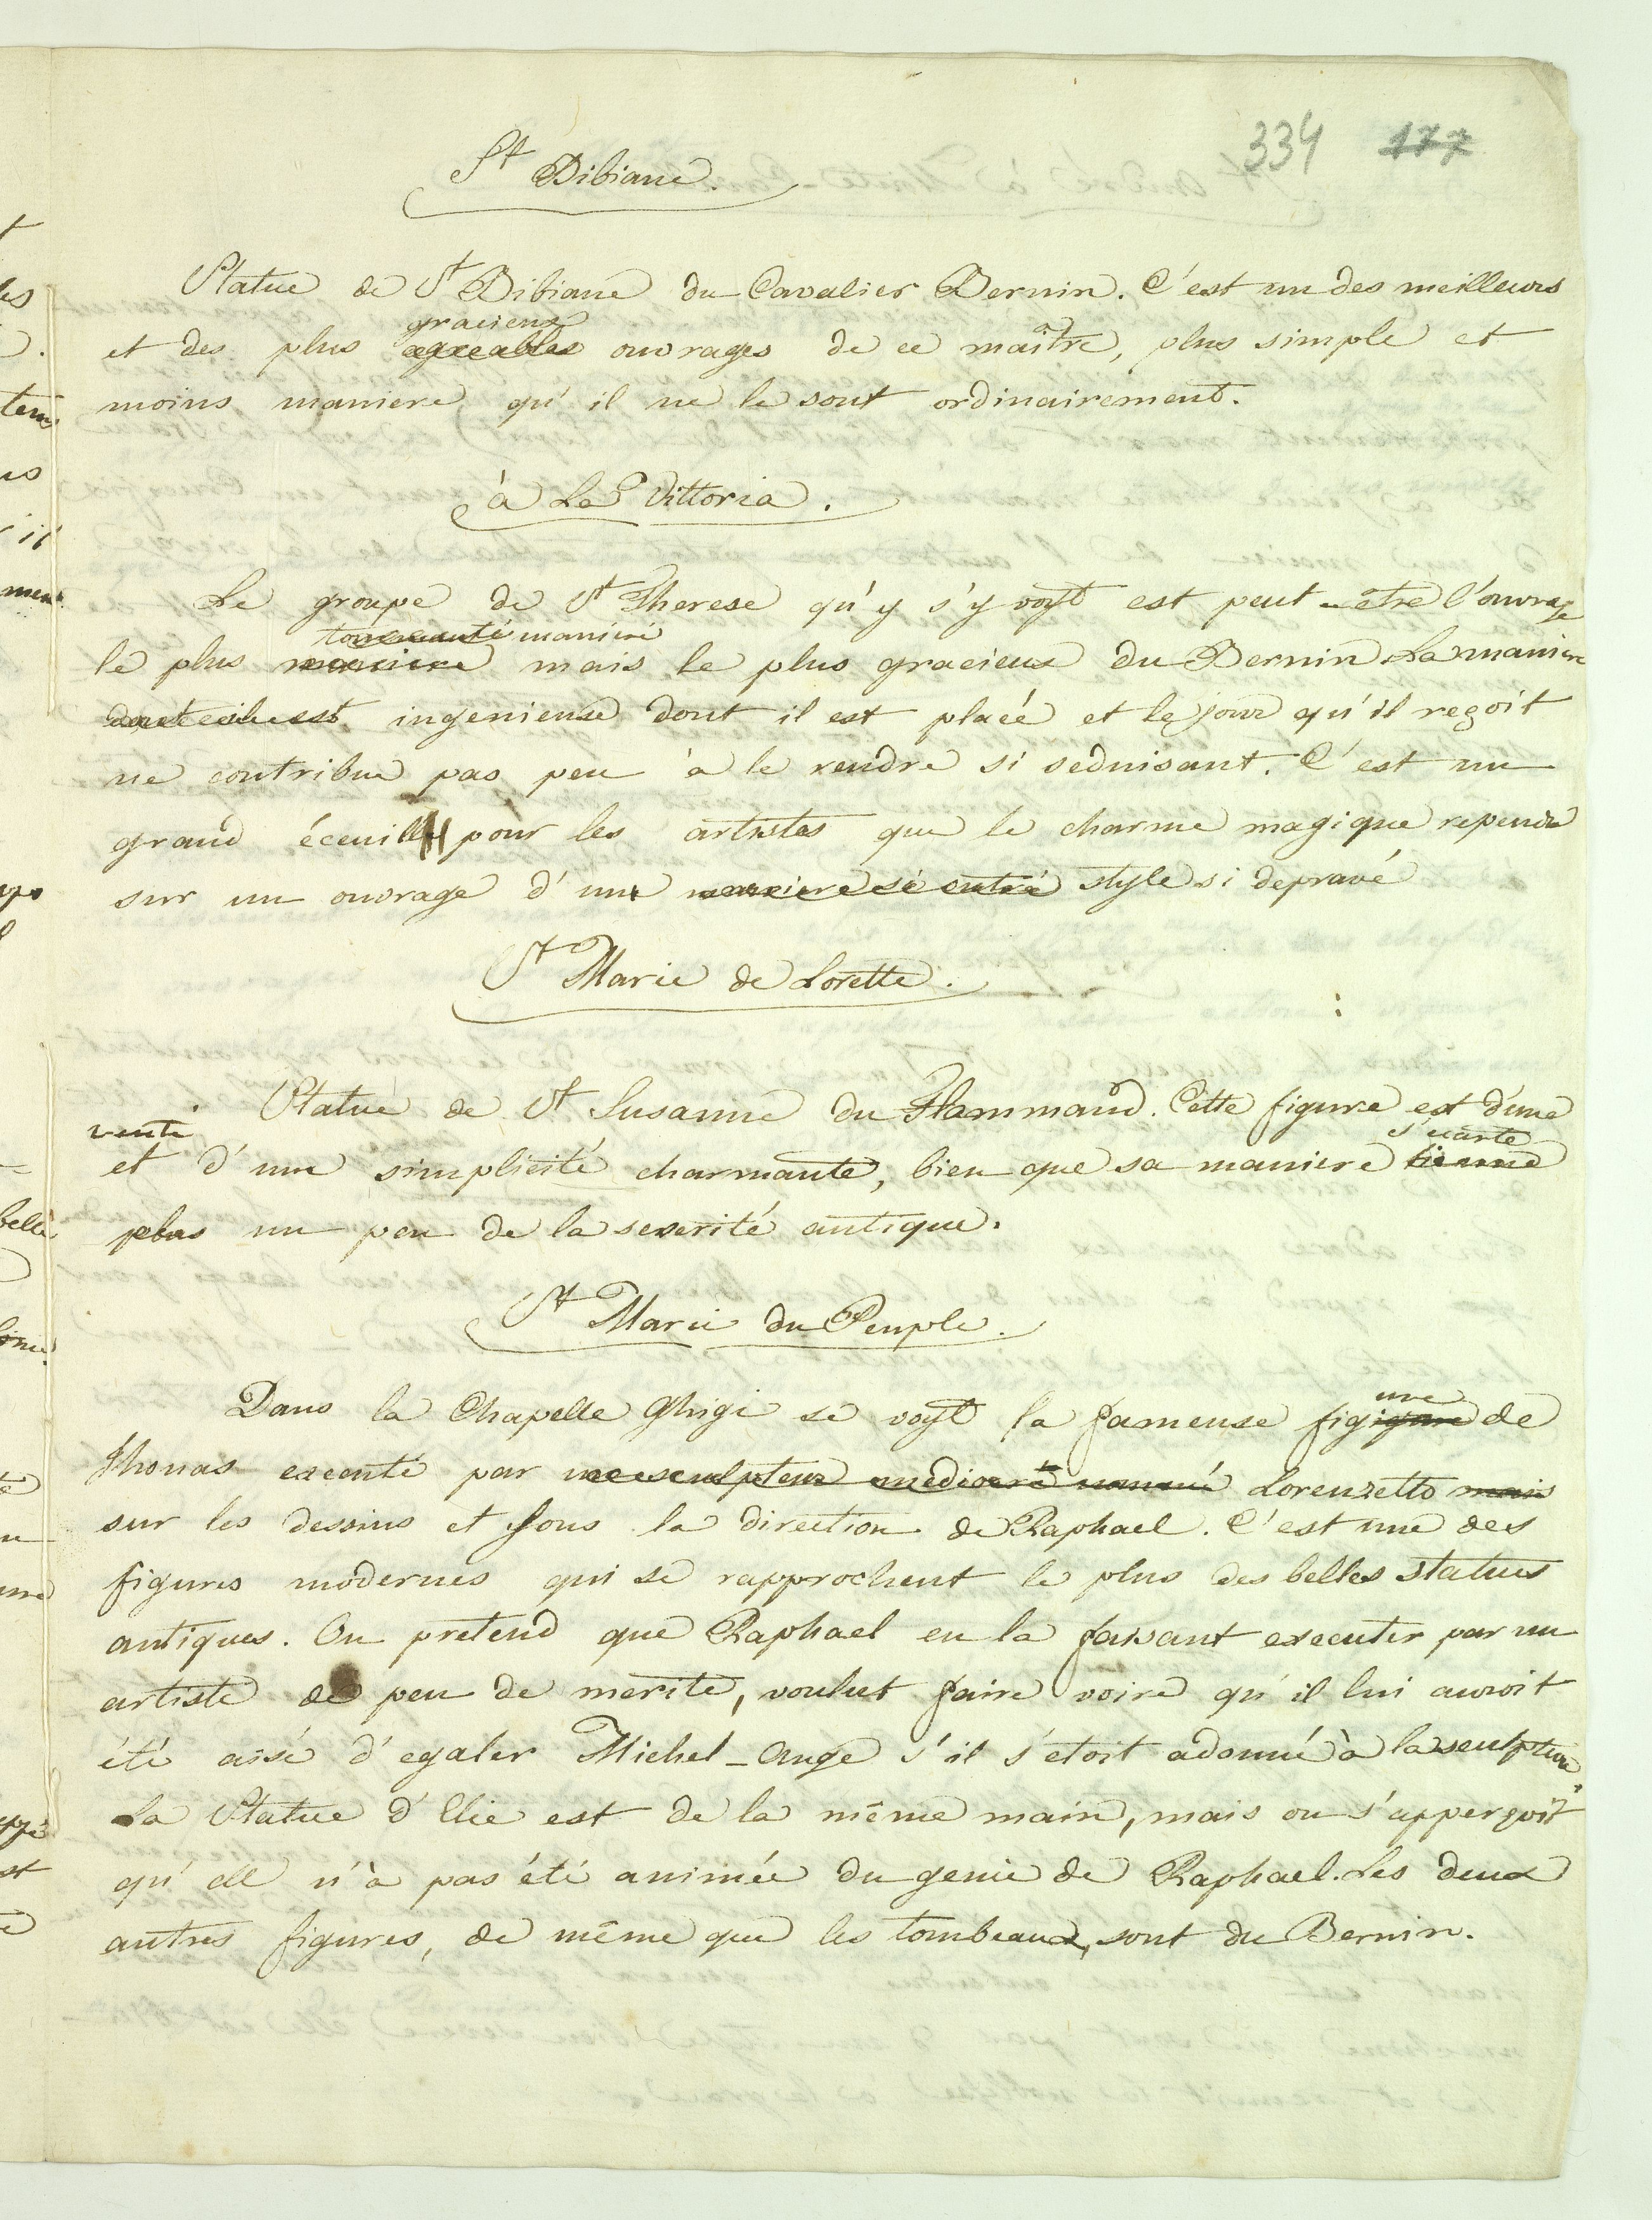 334 177
St Bibiane.
Statue de St Bibiane du Cavalier Bernin. C'est un des meilleurs
gracieux
et des plus agreables ouvrages de ce maître, plus simple et
moins maniere qu'il ne le sont ordinairement.
à La Vittoria.
Le groupe de St Therese qu'y s'y voyt est peut-etre l'ouvrage
tourmenté maniéré
le plus maniere mais le plus gracieux du Bernin La maniere
dont elle est ingenieuse dont il est placé et le jour qu'il reçoit
ne contribue pas peu à le rendre si seduisant. C'est un
grand éceuille pour les artistes que le charme magique rependu
sur un ouvrage d'un maniere si outré style si depravé
St Marie de Lorette.
Statue de St Susanne du Flammand. Cette figure est d'une
verité s'ecarte
et d'une simplicité charmante, bien que sa maniere tienne
plus un peu de la severité antique.
St Marie du Peuple.
Dans la Chapelle Ghigi se voyt la fameuse figigure de
ure
Jhonas executé par un sculpteur mediocre nommé Lorenzetto mais
sur les dessins et sous la direction de Raphael. C'est une des
figures modernes qui se rapprochent le plus des belles statues
antiques. On pretend que Raphael en la faisant executer par un
artiste de peu de merite, voulut faire voire qu'il lui auroit
été aisé d'egaler Michel-Ange s'il s'etoit adonné à la sculpture.
La Statue d'Elie est de la même main, mais on s'apperçoit
qu'elle n'à pas été animée du genie de Raphael. Les deux
autres figures, de même que les tombeaux, sont du Bernin.